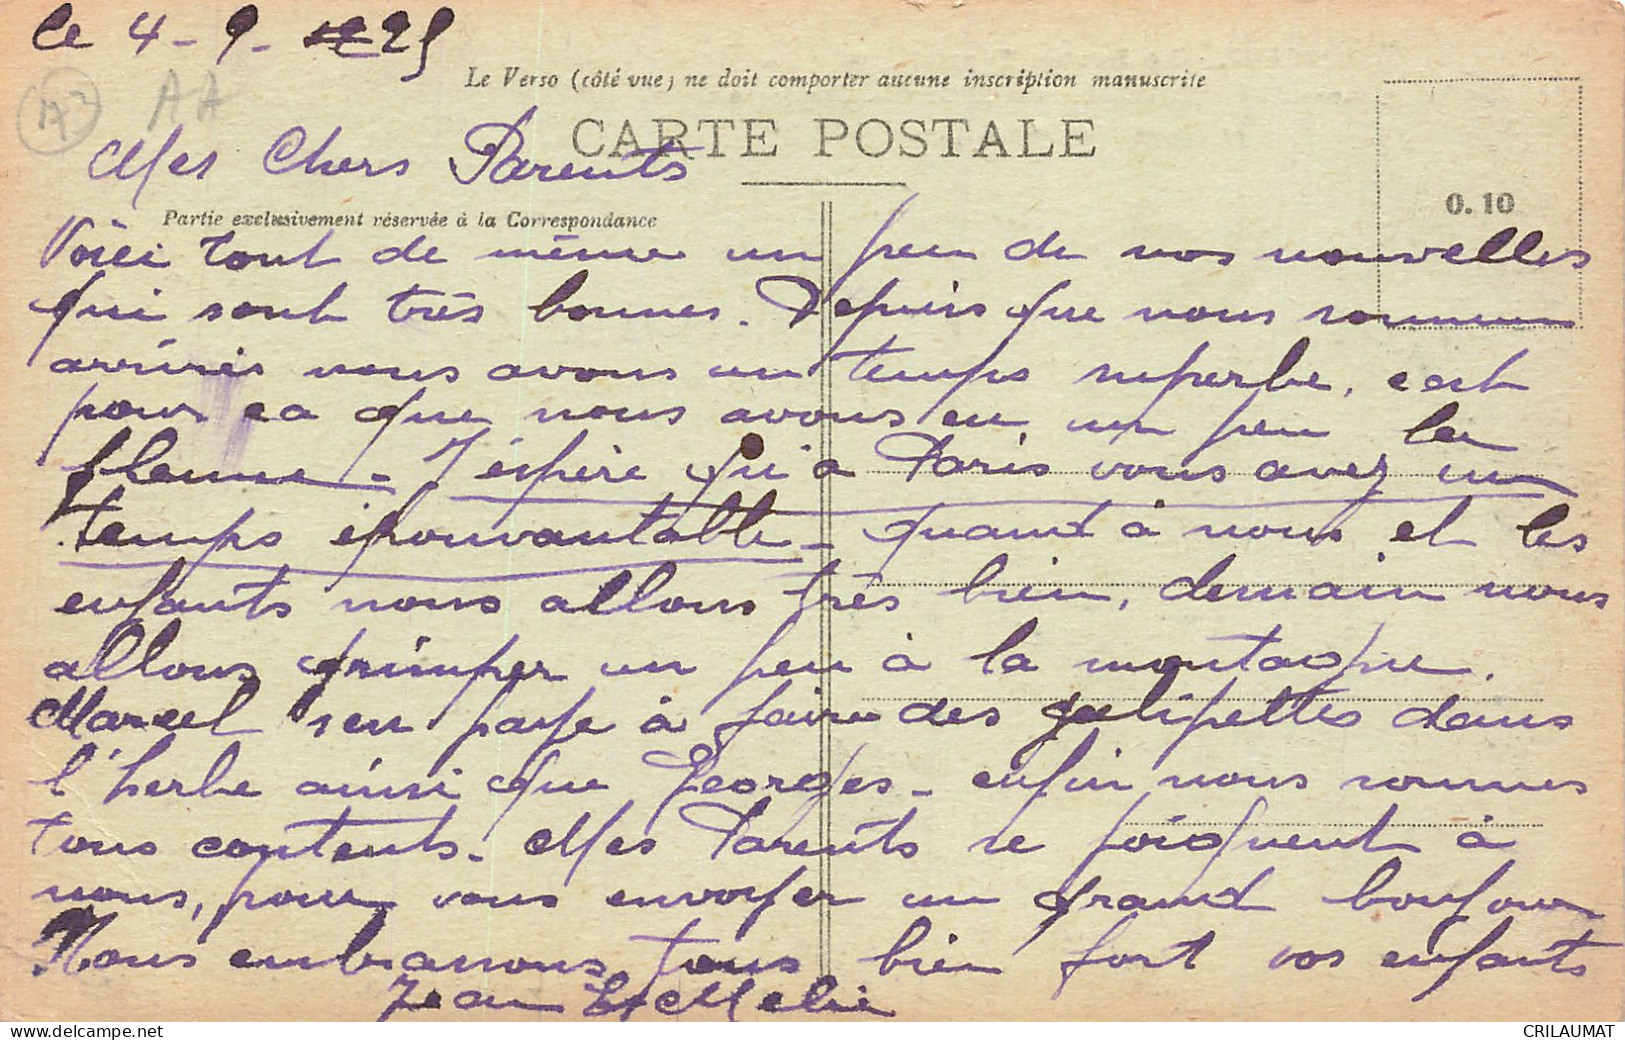 le 4-9-25
Le Verso (côté vue) ne doit comporter aucune inscription manuscrite
A2 AA
CARTE POSTALE
Mes Chers Parents
0.10
Partie exclusivement réservée à la Correspondance
Voici tout de même un peu de nos nouvelles
qui sont très bonnes. Depuis que nous sommes
arrivés nous avons un temps superbe, c'est
pour ca que nous avons eu un peu la
flemme - J'espère qu'à Paris vous avez un
temps épouvantable - quand à nous et les
enfants nous allons très bien, demain nous
allons grimper un peu à la montagne.
Marcel s'en paye à faire des galipettes dans
l'herbe ainsi que Georges - enfin nous sommes
tous contents. Mes Parents se joignent à
nous, pour vous envoyer un grand bonjour
Nous embrassons tous bien fort vos enfants
Jean Et Melie
CRILAUMAT